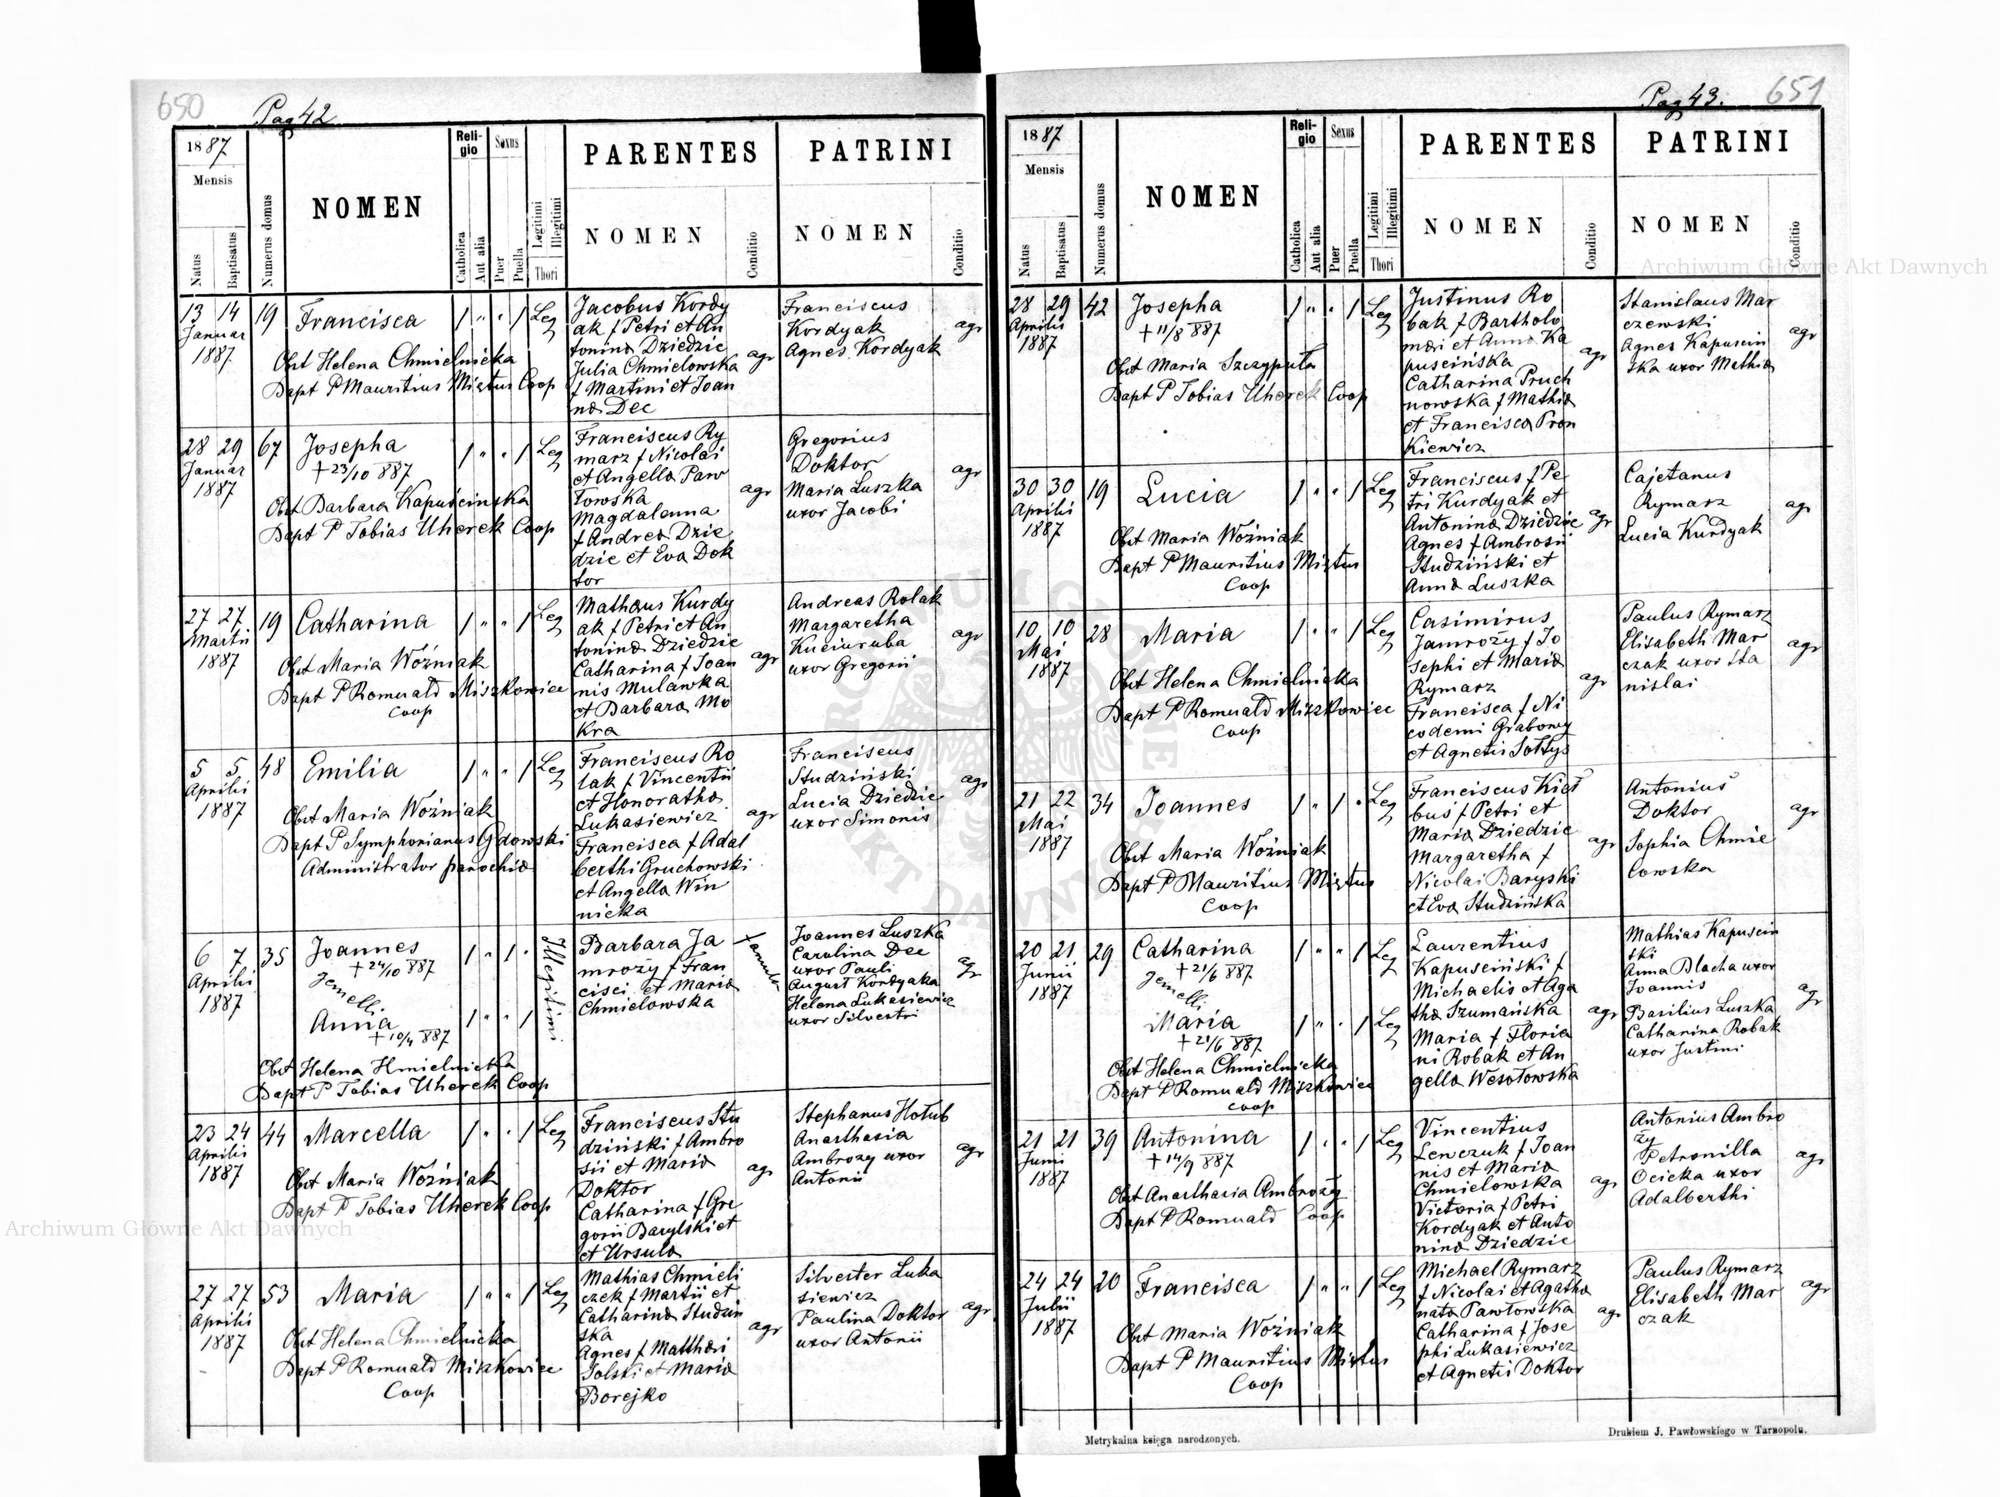 650
Pag 42
1887
Mensis
Natus
Baptisatus
Numerus domus
NOMEN
Religio
Catholica
Aut alia
Sexus
Puer
Puella
Legitimi
Illegitimi
Thori
PARENTES
NOMEN
Conditio
PATRINI
NOMEN
Conditio
13 14 19 Francisca / " " / Leg
Januar
1887
Obst Helena Chmielnicka
Bapt P Mauritius Miztus Coop
Jacobus Kordy
ak f Petri et An
tonina Dziedzic
Julia Chmielowska
f Martini et Joan
na Dec
agr
Franciscus
Kordyak
Agnes Kordyak
agr
28 29 67 Josepha / " " / Leg
Januar
1887
+ 23/10 887
Obst Barbara Kapuścinska
Bapt P Tobias Uherek Coop
Franciscus Ry
marz f Nicolai
et Angella Paw
łowska
Magdalenna
f Andrea Dzie
dzic et Eva Dok
tor
agr
Gregorius
Doktor
Maria Łuszka
uxor Jacobi
agr
27 27 19 Catharina / " " / Leg
Martii
1887
Obst Maria Woźniak
Bapt P Romuald Miszkowiec
Coop
Mathaus Kurdy
ak f Petri et An
tonina Dziedzic
Catharina f Joan
nis Mulawka
et Barbara Mo
kra
agr
Andreas Rolak
Margaretha
Kuciuruba
uxor Gregorii
agr
5 5 48 Emilia / " " / Leg
Aprilis
1887
Obst Maria Woźniak
Bapt P Symphorianus Gdowski
Administrator parochia
Franciscus Ro
lak f Vincentii
et Honoratha
Łukasiewicz
Francisca f Adal
berthi Gruchowski
et Angella Win
nicka
agr
Franciscus
Studziński
Lucia Dziedzic
uxor Simonis
agr
6 7 35 Joannes / " / "
Aprilis
1887
+ 24/10 887
Jemelli
Anna / " " /
+ 10/4 887
Illegitimi
Obst Helena Hmielnicka
Bapt P Tobias Uherek Coop
Barbara Ja
mroży f Fran
cisci et Maria
Chmielowska
famula
Joannes Łuszka
Carolina Dec
uxor Pauli
August Kordyaka
Helena Łukasiewicz
uxor Silvestri
agr
23 24 44 Marcella / " " / Leg
Aprilis
1887
Obst Maria Woźniak
Bapt P Tobias Uherek Coop
Franciscus Stu
dziński f Ambro
sii et Maria
Doktor
Catharina f Gre
gorii Barylski et
et Ursula
agr
Stephanus Hołub
Anasthasia
Ambrozy uxor
Antonii
agr
27 27 53 Maria / " " / Leg
Aprilis
1887
Obst Helena Chmielnicka
Bapt P Romuald Mizkowiec
Coop
Mathias Chmieli
czek f Martii et
Catharina Studzin
ska
Agnes f Matthæi
Solski et Maria
Borejko
agr
Silvester Łuka
siewicz
Paulina Doktor
uxor Antonii
agr
Pag 43.
651
1887
Mensis
Natus
Baptisatus
Numerus domus
NOMEN
Religio
Catholica
Aut alia
Sexus
Puer
Puella
Legitimi
Illegitimi
Thori
PARENTES
NOMEN
Conditio
PATRINI
NOMEN
Conditio
28 29 42 Josepha / " " / Leg
Aprilis
1887
+ 11/8 887
Obst Maria Szczypuła
Bapt P Tobias Uherek Coop
Justinus Ro
bak f Bartholo
mæi et Anna Ka
puscińska
Catharina Pruch
nowska f Mathia
et Francisca Pron
kiewicz
agr
Stanislaus Mar
czewski
Agnes Kapuscin
ska uxor Mathia
agr
30 30 19 Lucia / " " / Leg
Aprilis
1887
Obst Maria Woźniak
Bapt P Mauritius Miztus
Coop
Franciscus f Pe
tri Kurdyak et
Antonina Dziedzic
Agnes f Ambrosii
Studziński et
Anna Łuszka
agr
Cajetanus
Rymarz
Lucia Kurdyak
agr
10 10 28 Maria / " " / Leg
Mai
1887
Obst Helena Chmielnicka
Bapt P Romuald Miszkowiec
Coop
Casimirus
Jamroży f Jo
sephi et Maria
Rymarz
Francisca f Ni
codemi Grabowy
et Agnetis Sołtys
agr
Paulus Rymarz
Elisabeth Mar
czak uxor Sta
nislai
agr
21 22 34 Joannes / " / " Leg
Mai
1887
Obst Maria Woźniak
Bapt P Mauritius Miztus
Coop
Franciscus Kieł
buś f Petri et
Maria Dziedzic
Margaretha f
Nicolai Baryski
et Eva Studzińska
agr
Antonius
Doktor
Sophia Chmie
lowska
agr
20 21 29 Catharina / " " / Leg
Junii
1887
+ 21/6 887
Jemelli
Maria / " " / Leg
+ 21/6 887
Obst Helena Chmielnicka
Bapt P Romuald Miszkowiec
Coop
Laurentius
Kapusciński f
Michaelis et Aga
tha Szumańska
Maria f Floria
ni Robak et An
gella Wesołowska
agr
Mathias Kapuscin
ski
Anna Blacha uxor
Joannis
Basilius Łuszka
Catharina Robak
uxor Justini
agr
21 21 39 Antonina / " " / Leg
Junii
1887
+ 14/9 887
Obst Anasthasia Ambroży
Bapt P Romuald Coop
Vincentius
Lewczuk f Joan
nis et Maria
Chmielowska
Victoria f Petri
Kordyak et Anto
nina Dziedzic
agr
Antonius Ambro
ży
Petronilla
Ocicka uxor
Adalberthi
agr
24 24 20 Francisca / " " / Leg
Julii
1887
Obst Maria Woźniak
Bapt P Mauritius Miztus
Coop
Michael Rymarz
f Nicolai et Agatha
nata Pawłowska
Catharina f Jose
phi Łukasiewicz
et Agnetis Doktor
agr
Paulus Rymarz
Elisabeth Mar
czak
agr
Metrykalna księga narodzonych.
Drukiem J. Pawłowskiego w Tarnopolu.
Archiwum Główne Akt Dawnych
Archiwum Główne Akt Dawnych